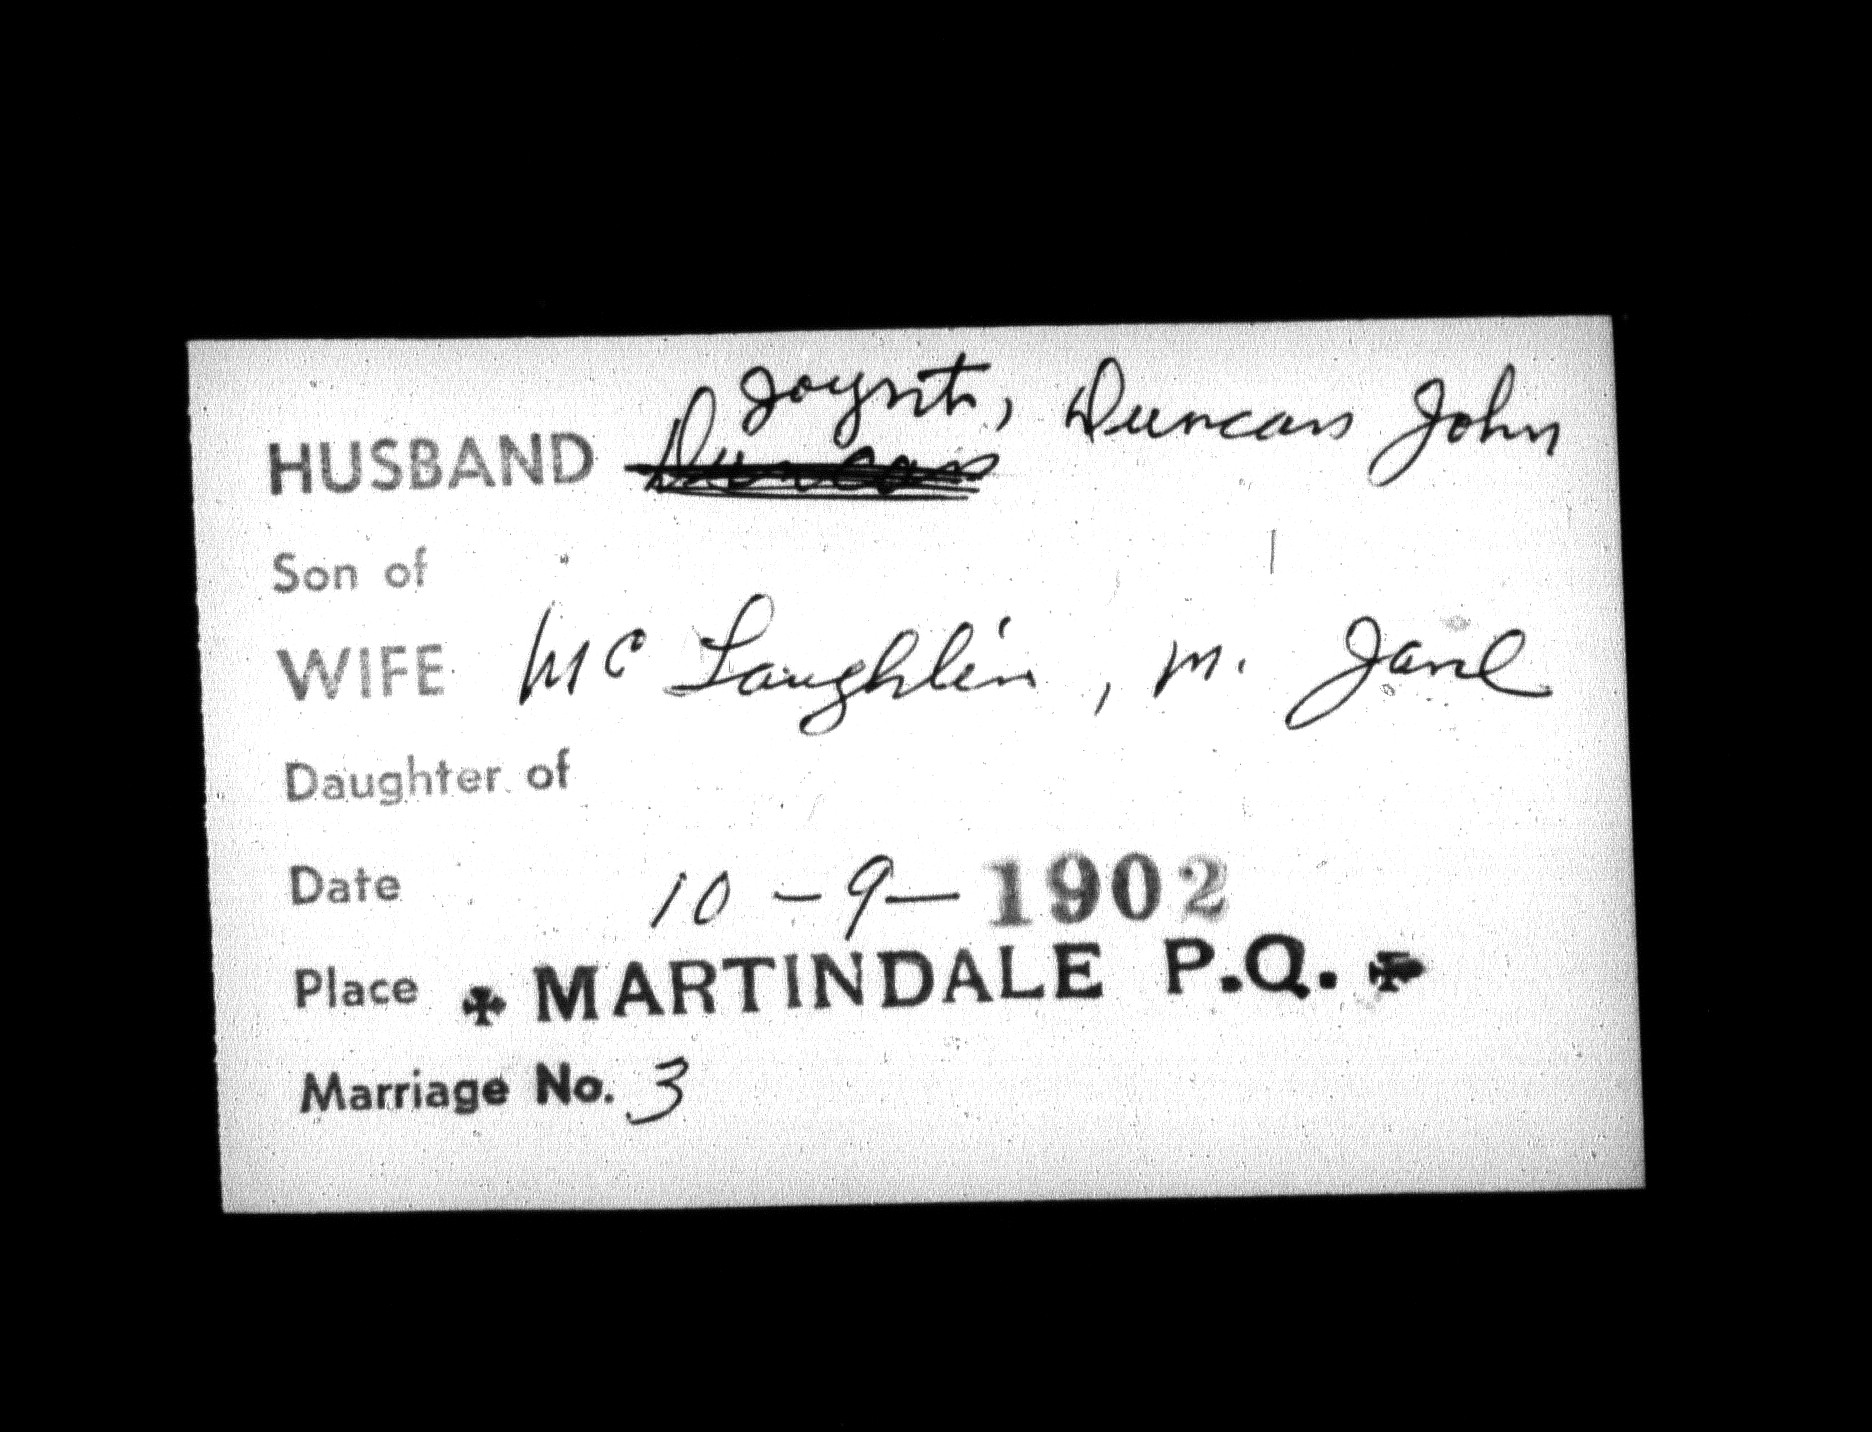 HUSBAND Duncan Joynt, Duncan John
Son of
WIFE McLaughlin, M. Jane
Daughter of
Date 10-9-1902
Place ✠ MARTINDALE P.Q. ✠
Marriage No. 3